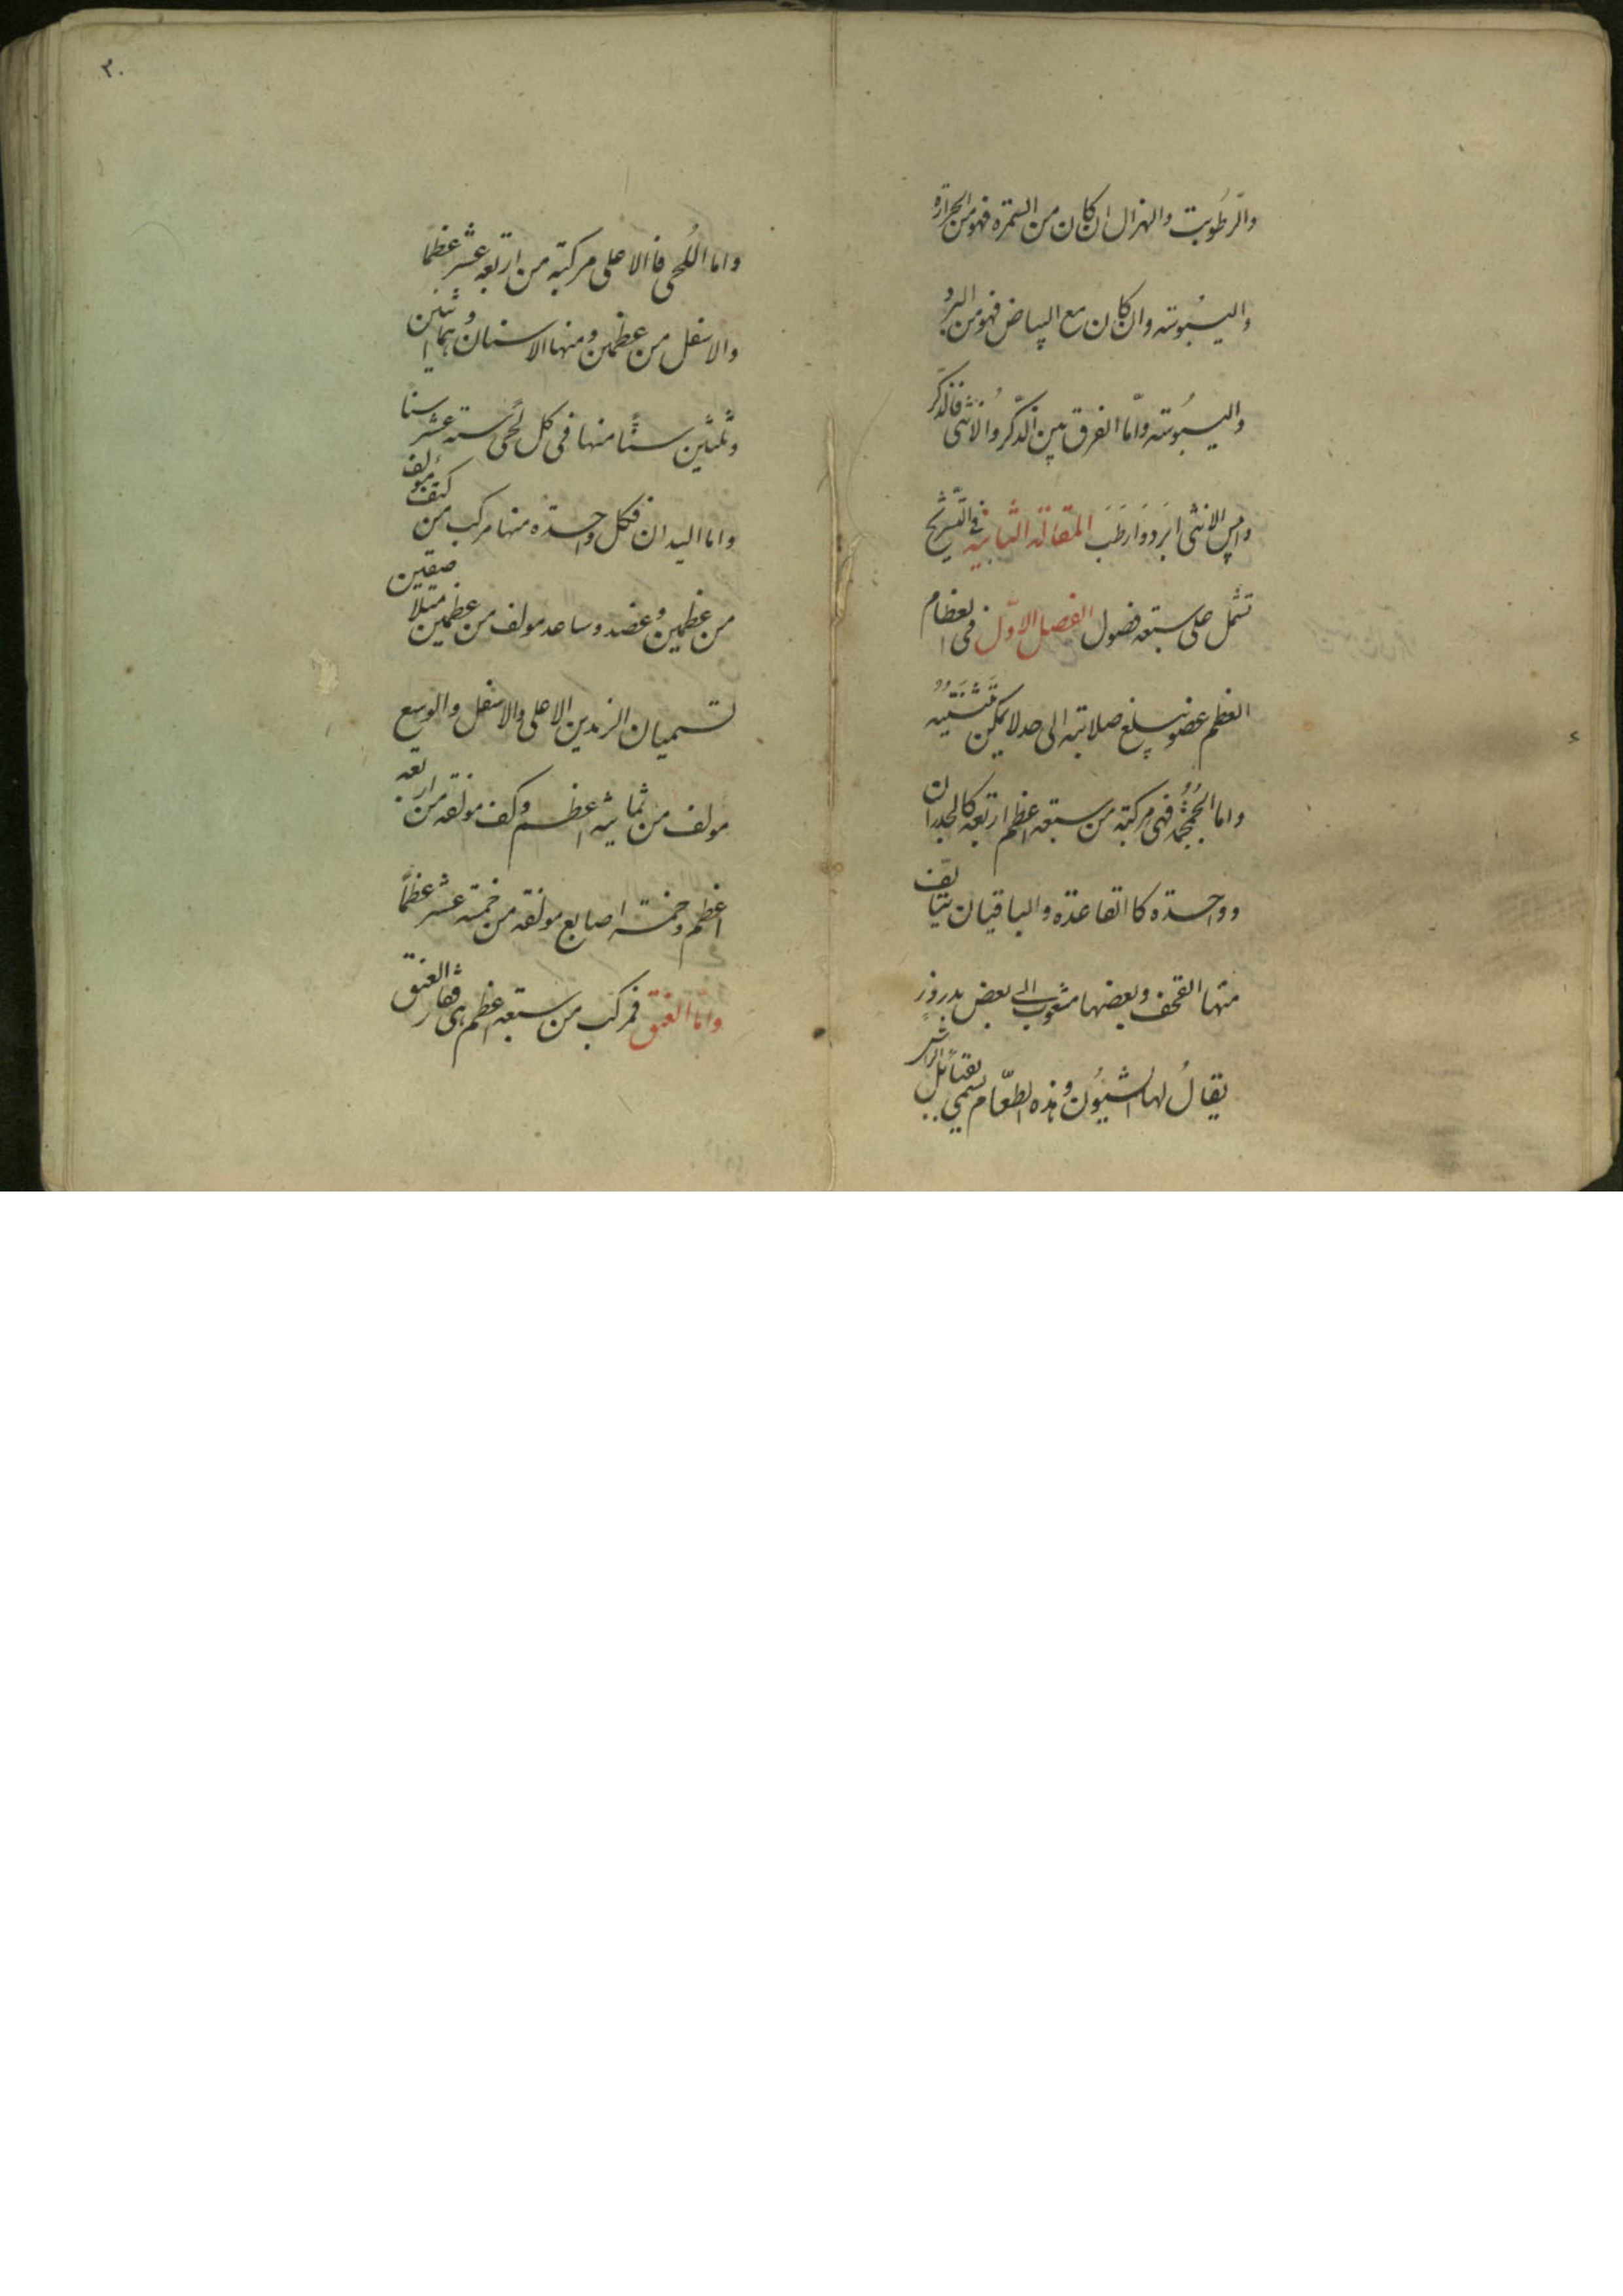 والرّطُوبت والهزال ان كان من السمرة فهو من الحرارة
واليبُوسته وان كان مع البياض فهو من البرد
واليبُوسته وامّا الفرق بين الذّكر والانثى فالذكر
الانثى ابَرد وَارطَبَ المقالة الثانية فى التشريح
تشمل على سبعه فصول الفصل الاوّل فى العظام
العظم عضو يبلغ صلابته الى حد لا يمكن تَثنيَتُه
واما الجُمجُمُه فهى مركبته من سبعه اعظم اربعه كالجدران
وواحدة كا القاعدة والباقيان يتالف
منها القحف وبعضها مشعوب الى بعض بدروز
يقالُ لها الشيُون وهذه الطعّام يسمى بقبائل الراس
٢٠
واما اللُحى فاالاعلى مركبته من اربعه عشر عظمًا
والاسفل من عظمين ومنها الاسنان وهما اثنين
وثلثين سنًّا منها فى كل لُحى سته عشر سنا
واما اليدان فكل واحدة منها مركب من كتف مولف
من عظمين وعضد وساعد مولف من عظمين متلاصقين
تسميان الزندين الاعلى والاسفل والرسغ
مولف من ثمانيه اعظم وكف مولفه من اربعه
اعظم وخمسة اصابع مولفه من خمسه عشر عظمًا
وامّا العنق فمركب من سبعه اعظم هى فقار العنق